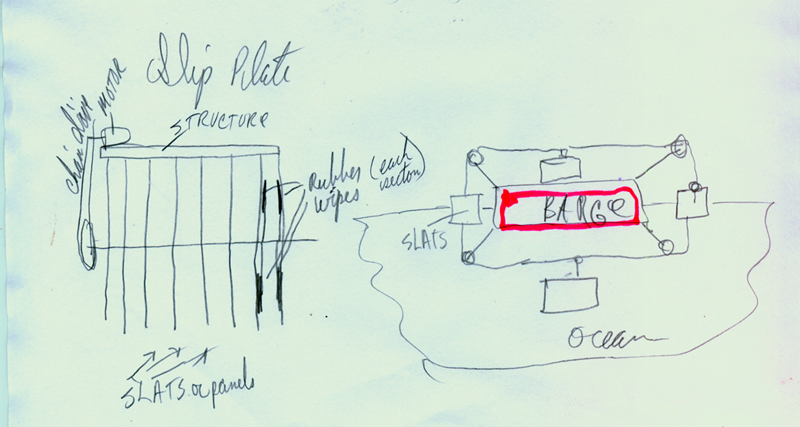 Slip Plate
chain drive
MOTOR
STRUCTURE
Rubber (each
wipes section)
SLATS or panels
BARGE
SLATS
Ocean